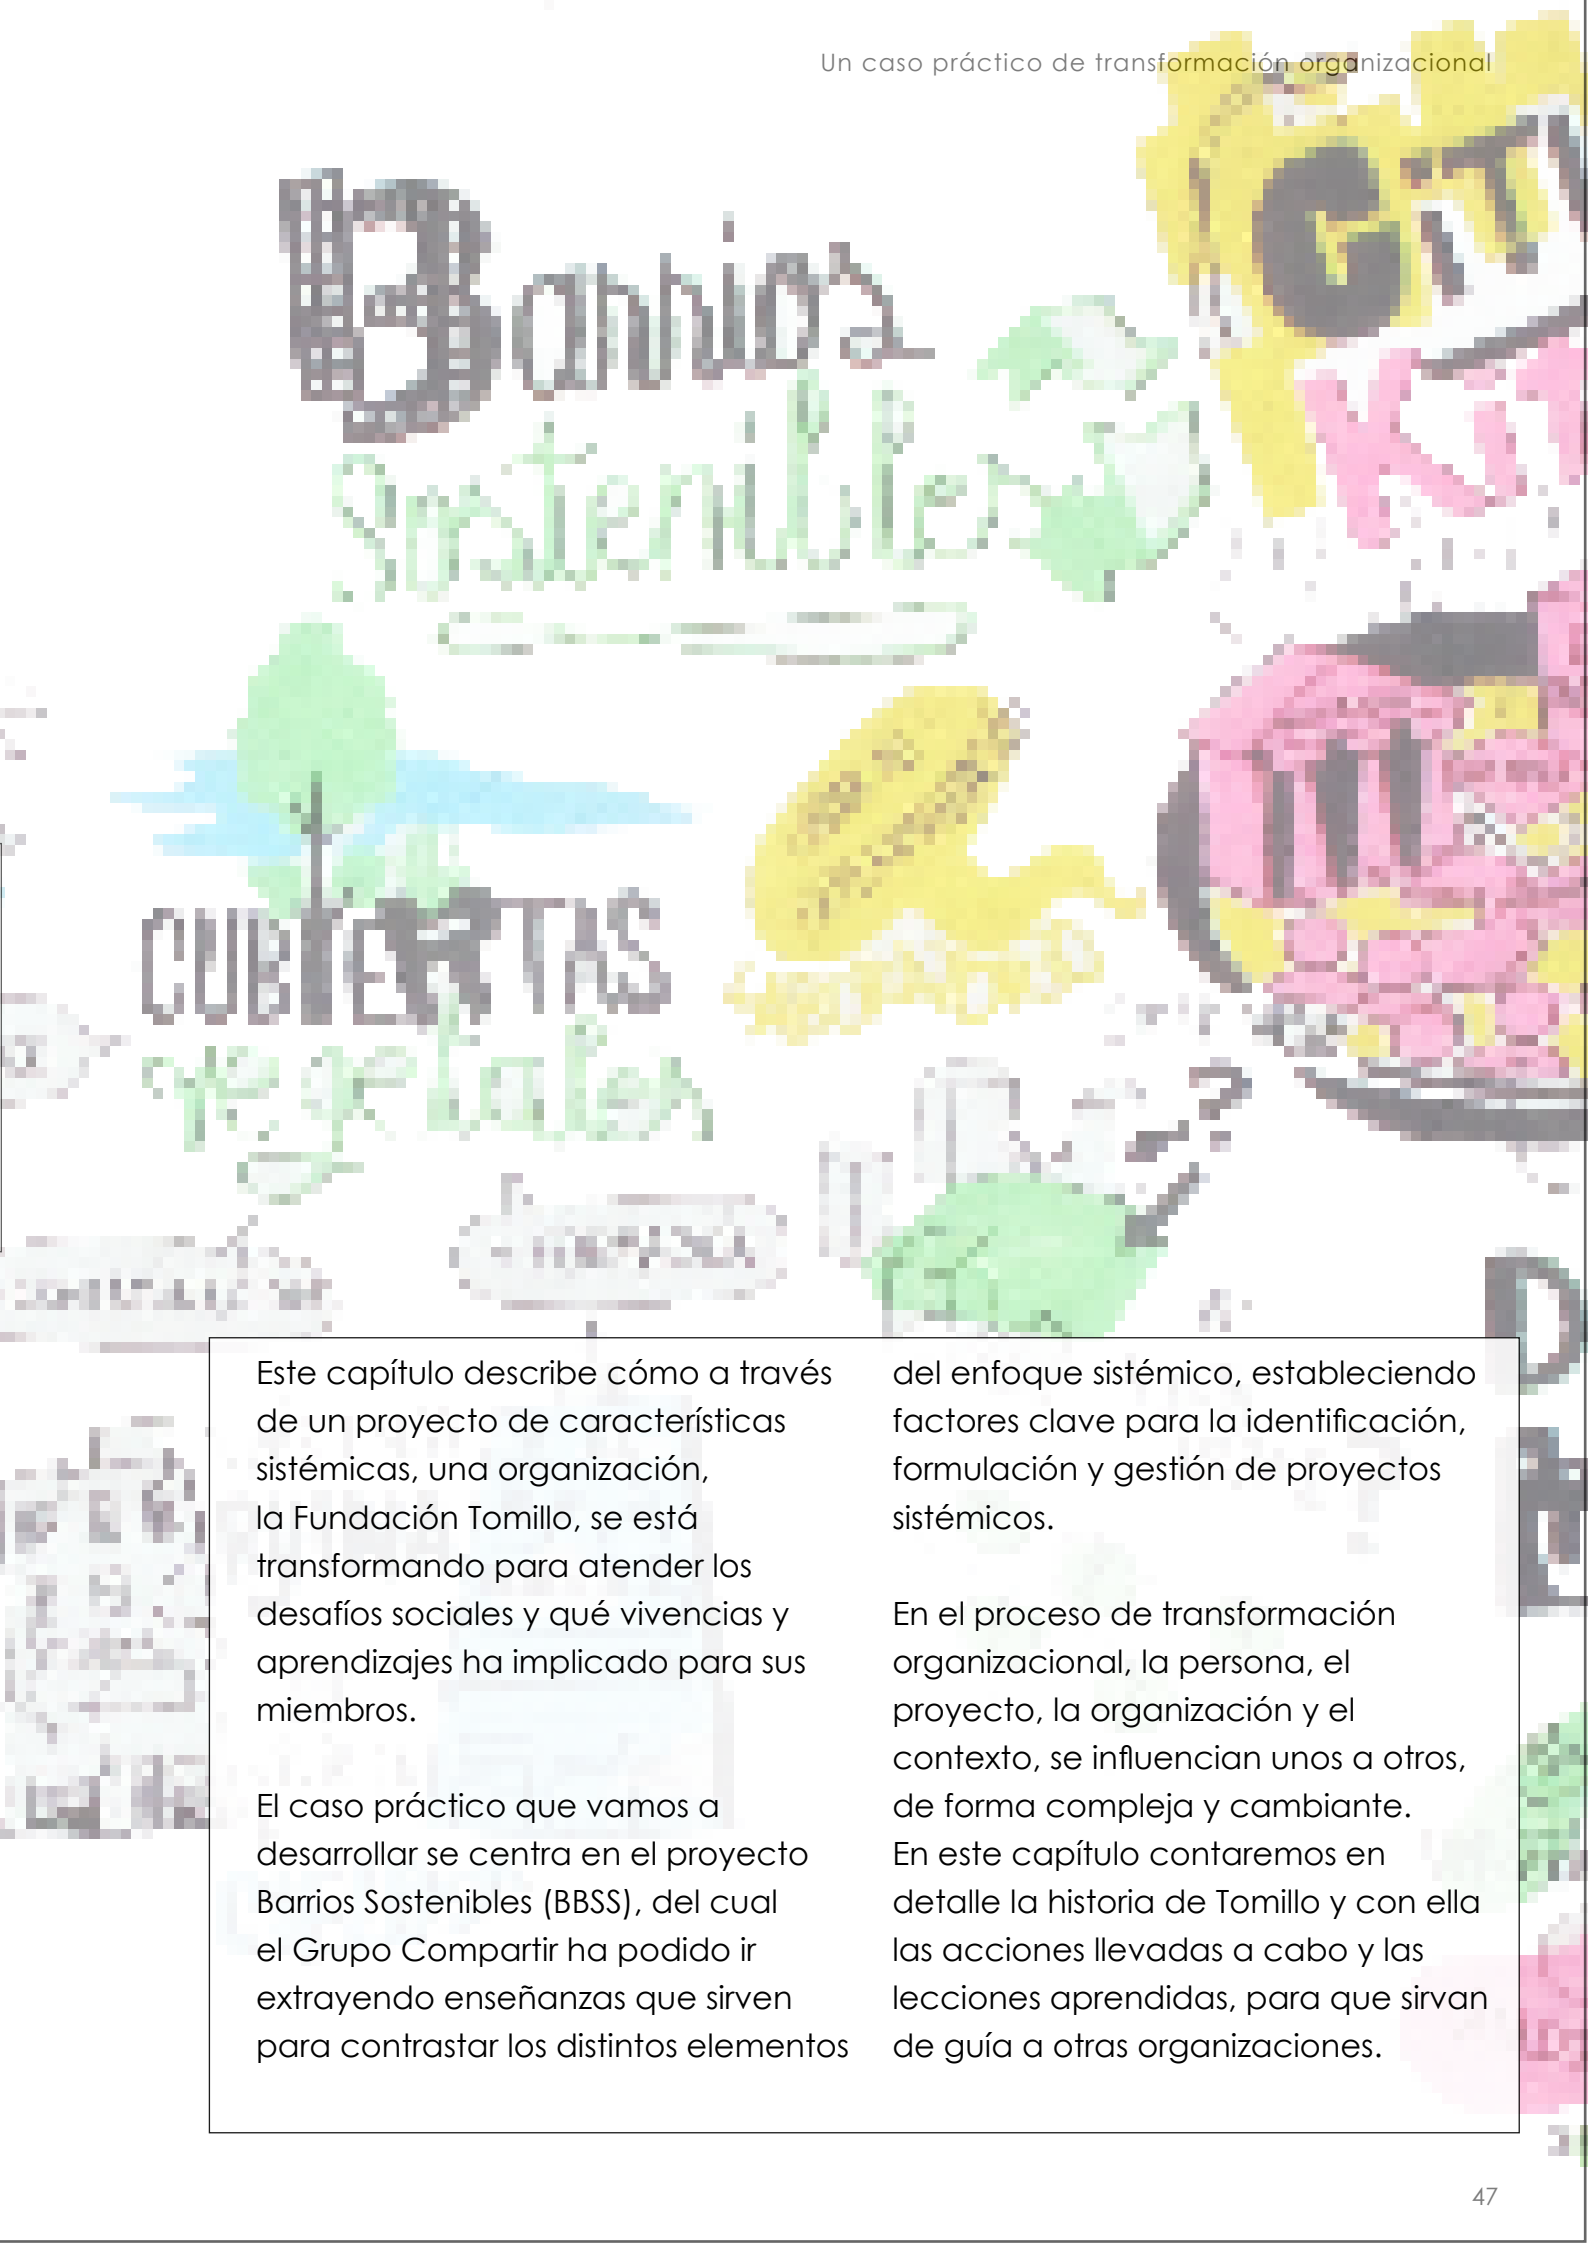 Un caso práctico de transformación organizacional
Barrios
Sostenibles
CUBIERTAS
vegetales
Este capítulo describe cómo a través
de un proyecto de características
sistémicas, una organización,
la Fundación Tomillo, se está
transformando para atender los
desafíos sociales y qué vivencias y
aprendizajes ha implicado para sus
miembros.
El caso práctico que vamos a
desarrollar se centra en el proyecto
Barrios Sostenibles (BBSS), del cual
el Grupo Compartir ha podido ir
extrayendo enseñanzas que sirven
para contrastar los distintos elementos
del enfoque sistémico, estableciendo
factores clave para la identificación,
formulación y gestión de proyectos
sistémicos.
En el proceso de transformación
organizacional, la persona, el
proyecto, la organización y el
contexto, se influencian unos a otros,
de forma compleja y cambiante.
En este capítulo contaremos en
detalle la historia de Tomillo y con ella
las acciones llevadas a cabo y las
lecciones aprendidas, para que sirvan
de guía a otras organizaciones.
47